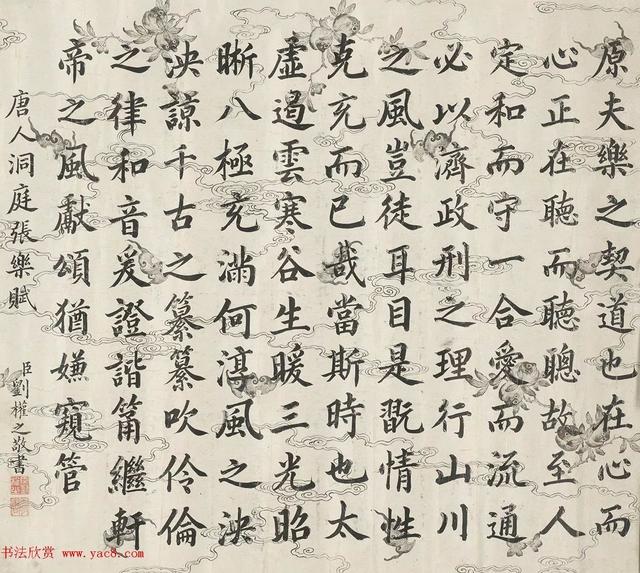 原夫樂之契道也在心而
心正在聽而聽聰故至人
定和而守一合愛而流通
必以濟政刑之理行山川
之風豈徒耳目是翫情性
克充而已哉當斯時也太
虛遏雲寒谷生暖三光昭
晰八極充滿何淳風之泱
泱諒千古之纂纂吹伶倫
之律和音爰證諧筩繼軒
帝之風獻頌猶嫌窺管
唐人洞庭張樂賦
臣劉權之敬書
书法欣赏 www.yac8.com